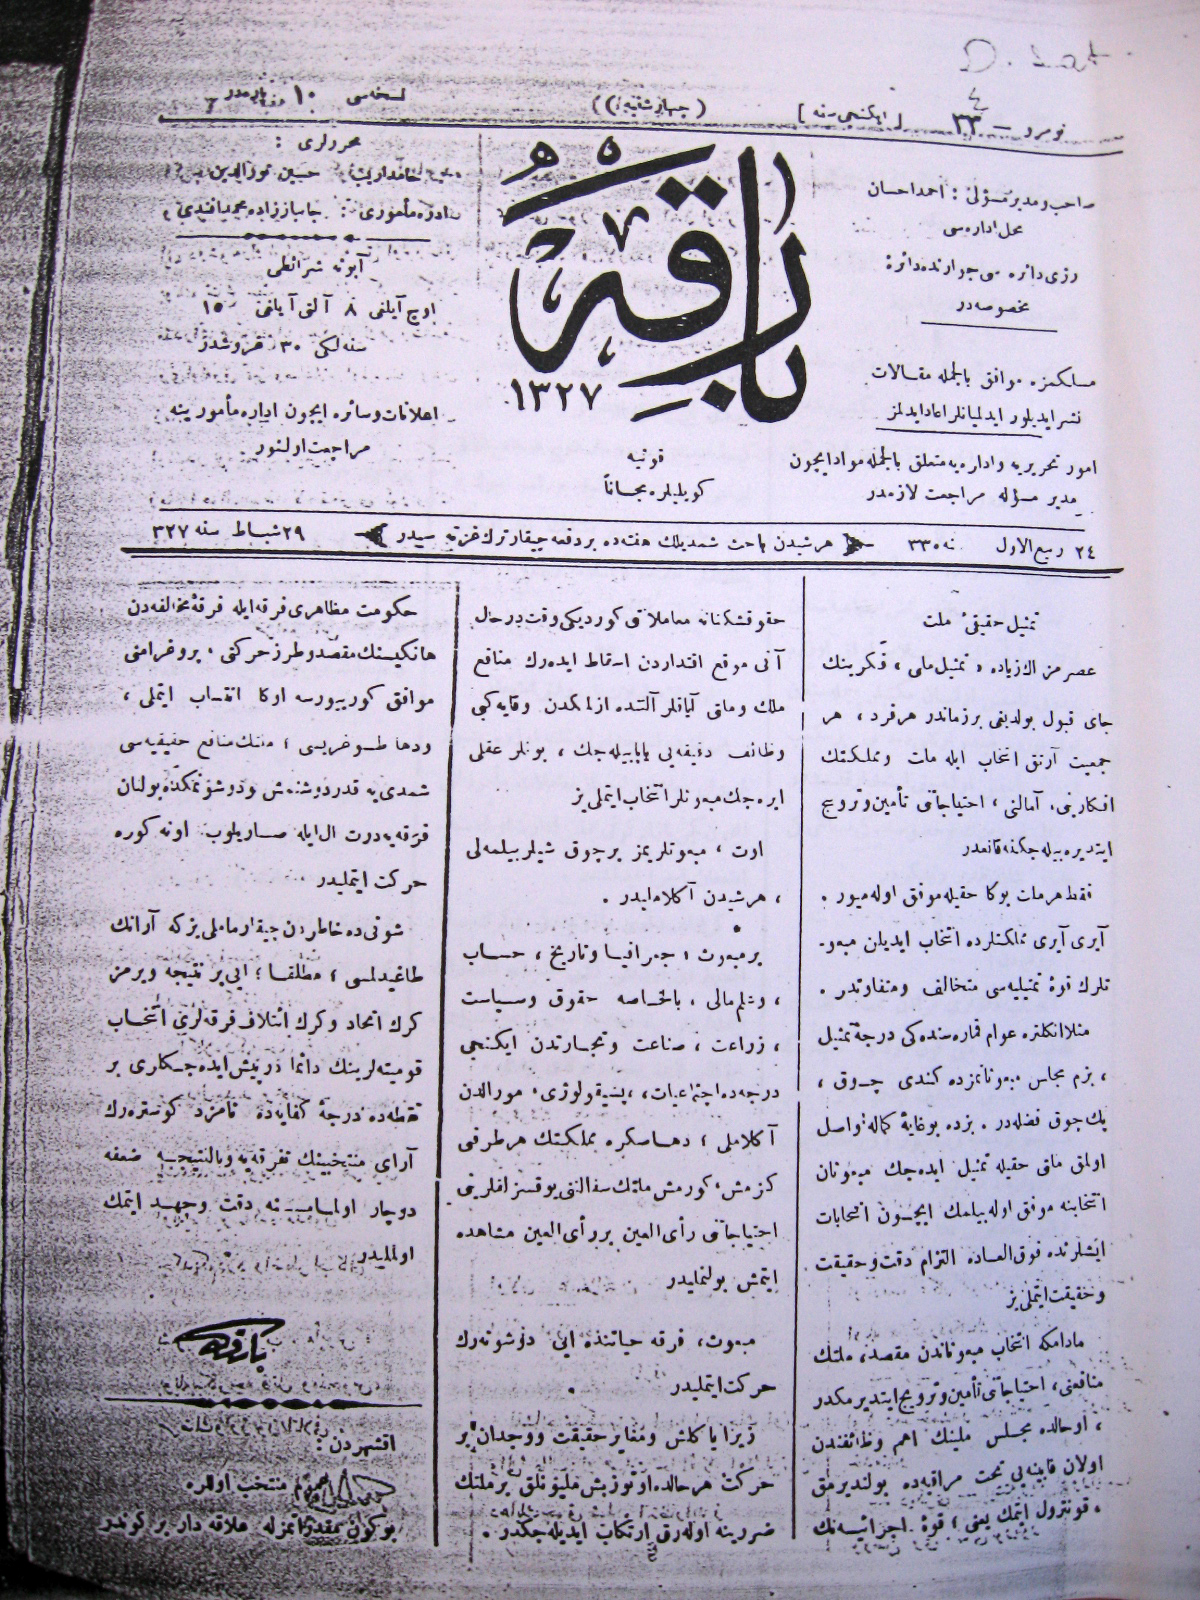 D.
نومرو — ٣٣
٤
[ ایكنجی سنه ]
( جهارشنبه )
نسخه‌سی ١٠ پاره‌در
صاحب و مدیر مسؤلی : احمد احسان
محل اداره‌سی
رژی دائره‌سی جوارنده دائرهٔ
مخصوصه‌در
مسلكمزه موافق بالجمله مقالات
نشر ایدیلور ایدلمیانلر اعاده ایدلمز
امور تحریریه و اداره‌یه متعلق بالجمله مواد ایچون
مدیر مسؤله مراجعت لازمدر
بارقه
١٣٢٧
قونیه
كویلیلره مجاناً
محررلری :
حسین نورالدین
اداره مأموری : جانباززاده محمد افندی
آبونه شرائطی
اوچ آیلغی ٨ آلتی آیلغی ١٥
سنه‌لكی ٣٠ غروشدر
اعلانات و سائره ایچون اداره مأمورینه
مراجعت اولنور
٢٤ ربیع الاول سنه ٣٣٠
هر شیدن باحث شمدیلك هفته‌ده بر دفعه چیقار ترك غزته‌سیدر
٢٩ شباط سنه ٣٢٧
تمثیل حقیقیٔ ملت
عصرمز اك زیاده ، تمثیل ملی ، فكرینك
جای قبول بولدیغی بر زماندر هر فرد ، هر
جمعیت آرتق انتخاب ایله ملت و مملكتك
افكارینی، آمالنی ، احتیاجاتی تأمین و ترویج
ایتدیره بیله‌جكنه قانعدر
فقط هر ملت بوكا حقیله موفق اوله‌میور .
آیری آیری مملكتلرده انتخاب ایدیلن مبعو-
ثلرك قوهٔ تمثیلیه‌سی متخالف و متفاوتدر .
مثلا انكلتره عوام قماره‌سنده‌كی درجهٔ تمثیل
، بزم مجلس مبعوثانمزده كندی چوق ،
پك چوق فضله‌در . بزده بو غایهٔ كماله واصل
اولمق ملتی حقیله تمثیل ایده‌جك مبعوثان
انتخابنه موفق اوله بیلمك ایچون انتخابات
ایشلرنده فوق العاده التزام دقت و حقیقت
و حقیقت ایتملی‌یز
مادامكه انتخاب مبعوثاندن مقصد، ملتك
منافعنی، احتیاجاتی تأمین و ترویج ایتدیرمكدر
، او حالده مجلس ملینك اهم وظائفندن
اولان قابینه‌یی تحت مراقبه‌ده بولندیرمق
، قونترول ایتمك یعنی ، قوهٔ اجرائیه‌نك
حقوقشكنانه معاملاتی كوردیكی وقت درحال
آنی موقع اقتداردن اسقاط ایده‌رك منافع
ملك و ملتی آیاقلر آلتنده ازلمكدن وقایه كبی
وظائف دقیقه‌یی یاپابیله‌جك ، بونلر عقلی
ایره‌جك مبعوثلر انتخاب ایتملی‌یز
اوت ، مبعوثلریمز بر چوق شیلر بیلمه‌لی
، هر شیدن آكلاملیدر .
بر مبعوث ؛ جغرافیا و تاریخ ، حساب
، و علم مالی ، بالخاصه حقوق و سیاست
، زراعت ، صناعت و تجارتدن ایكنجی
درجه‌ده اجتماعیات، پسیقولوژی، مورالدن
آكلاملی ؛ دها صكره مملكتك هر طرفی
كزمش، كورمش ملتك سفالتی یوقسزلقلرینی
احتیاجاتی رأی العین بر رأی العین مشاهده
ایتمش بولنملیدر
مبعوث، فرقه حیاتنده ایی دوشونه‌رك
حركت ایتملیدر
زیرا یا كلش و مغایر حقیقت و وجدان بر
حركت هر حالده اوتوز بش ملیونلق بر ملتك
ضررینه اوله‌رق ارتكاب ایدیله‌جكدر .
حكومت مظاهری فرقه ایله فرقهٔ مخالفه‌دن
هانكیسنك مقصد و طرز حركتی ، پروغرامنی
موافق كورییورسه اوكا انتساب ایتملی ،
و دها طوغریسی ؛ ملتك منافع حقیقیه‌سی
شمدی‌یه قدر دوشنمش و دوشونمكده بولنان
فرقه‌یه درت ال ایله صاریلوب اونه كوره
حركت ایتملیدر
شونی ده خاطردن چیقارماملی‌یز كه آرانك
طاغیدلمسی ؛ مطلقا ؛ ایی بر نتیجه ویرمز
كرك اتحاد و كرك ائتلاف فرقه‌لری انتخاب
قومیته‌لرینك دائما درپیش ایده‌جكلری بر
نقطه‌ده درجهٔ كفایه‌ده نامزد كوستره‌رك
آرای منتخبینك تفرقه‌یه و بالنتیجه ضعفه
دوچار اولمامسنه دقت و جهد ایتمك
اولملیدر
بارقه
اقشهردن :
منتخب اوللره
بوكون مقدراتمزله علاقه دار بر كوندر